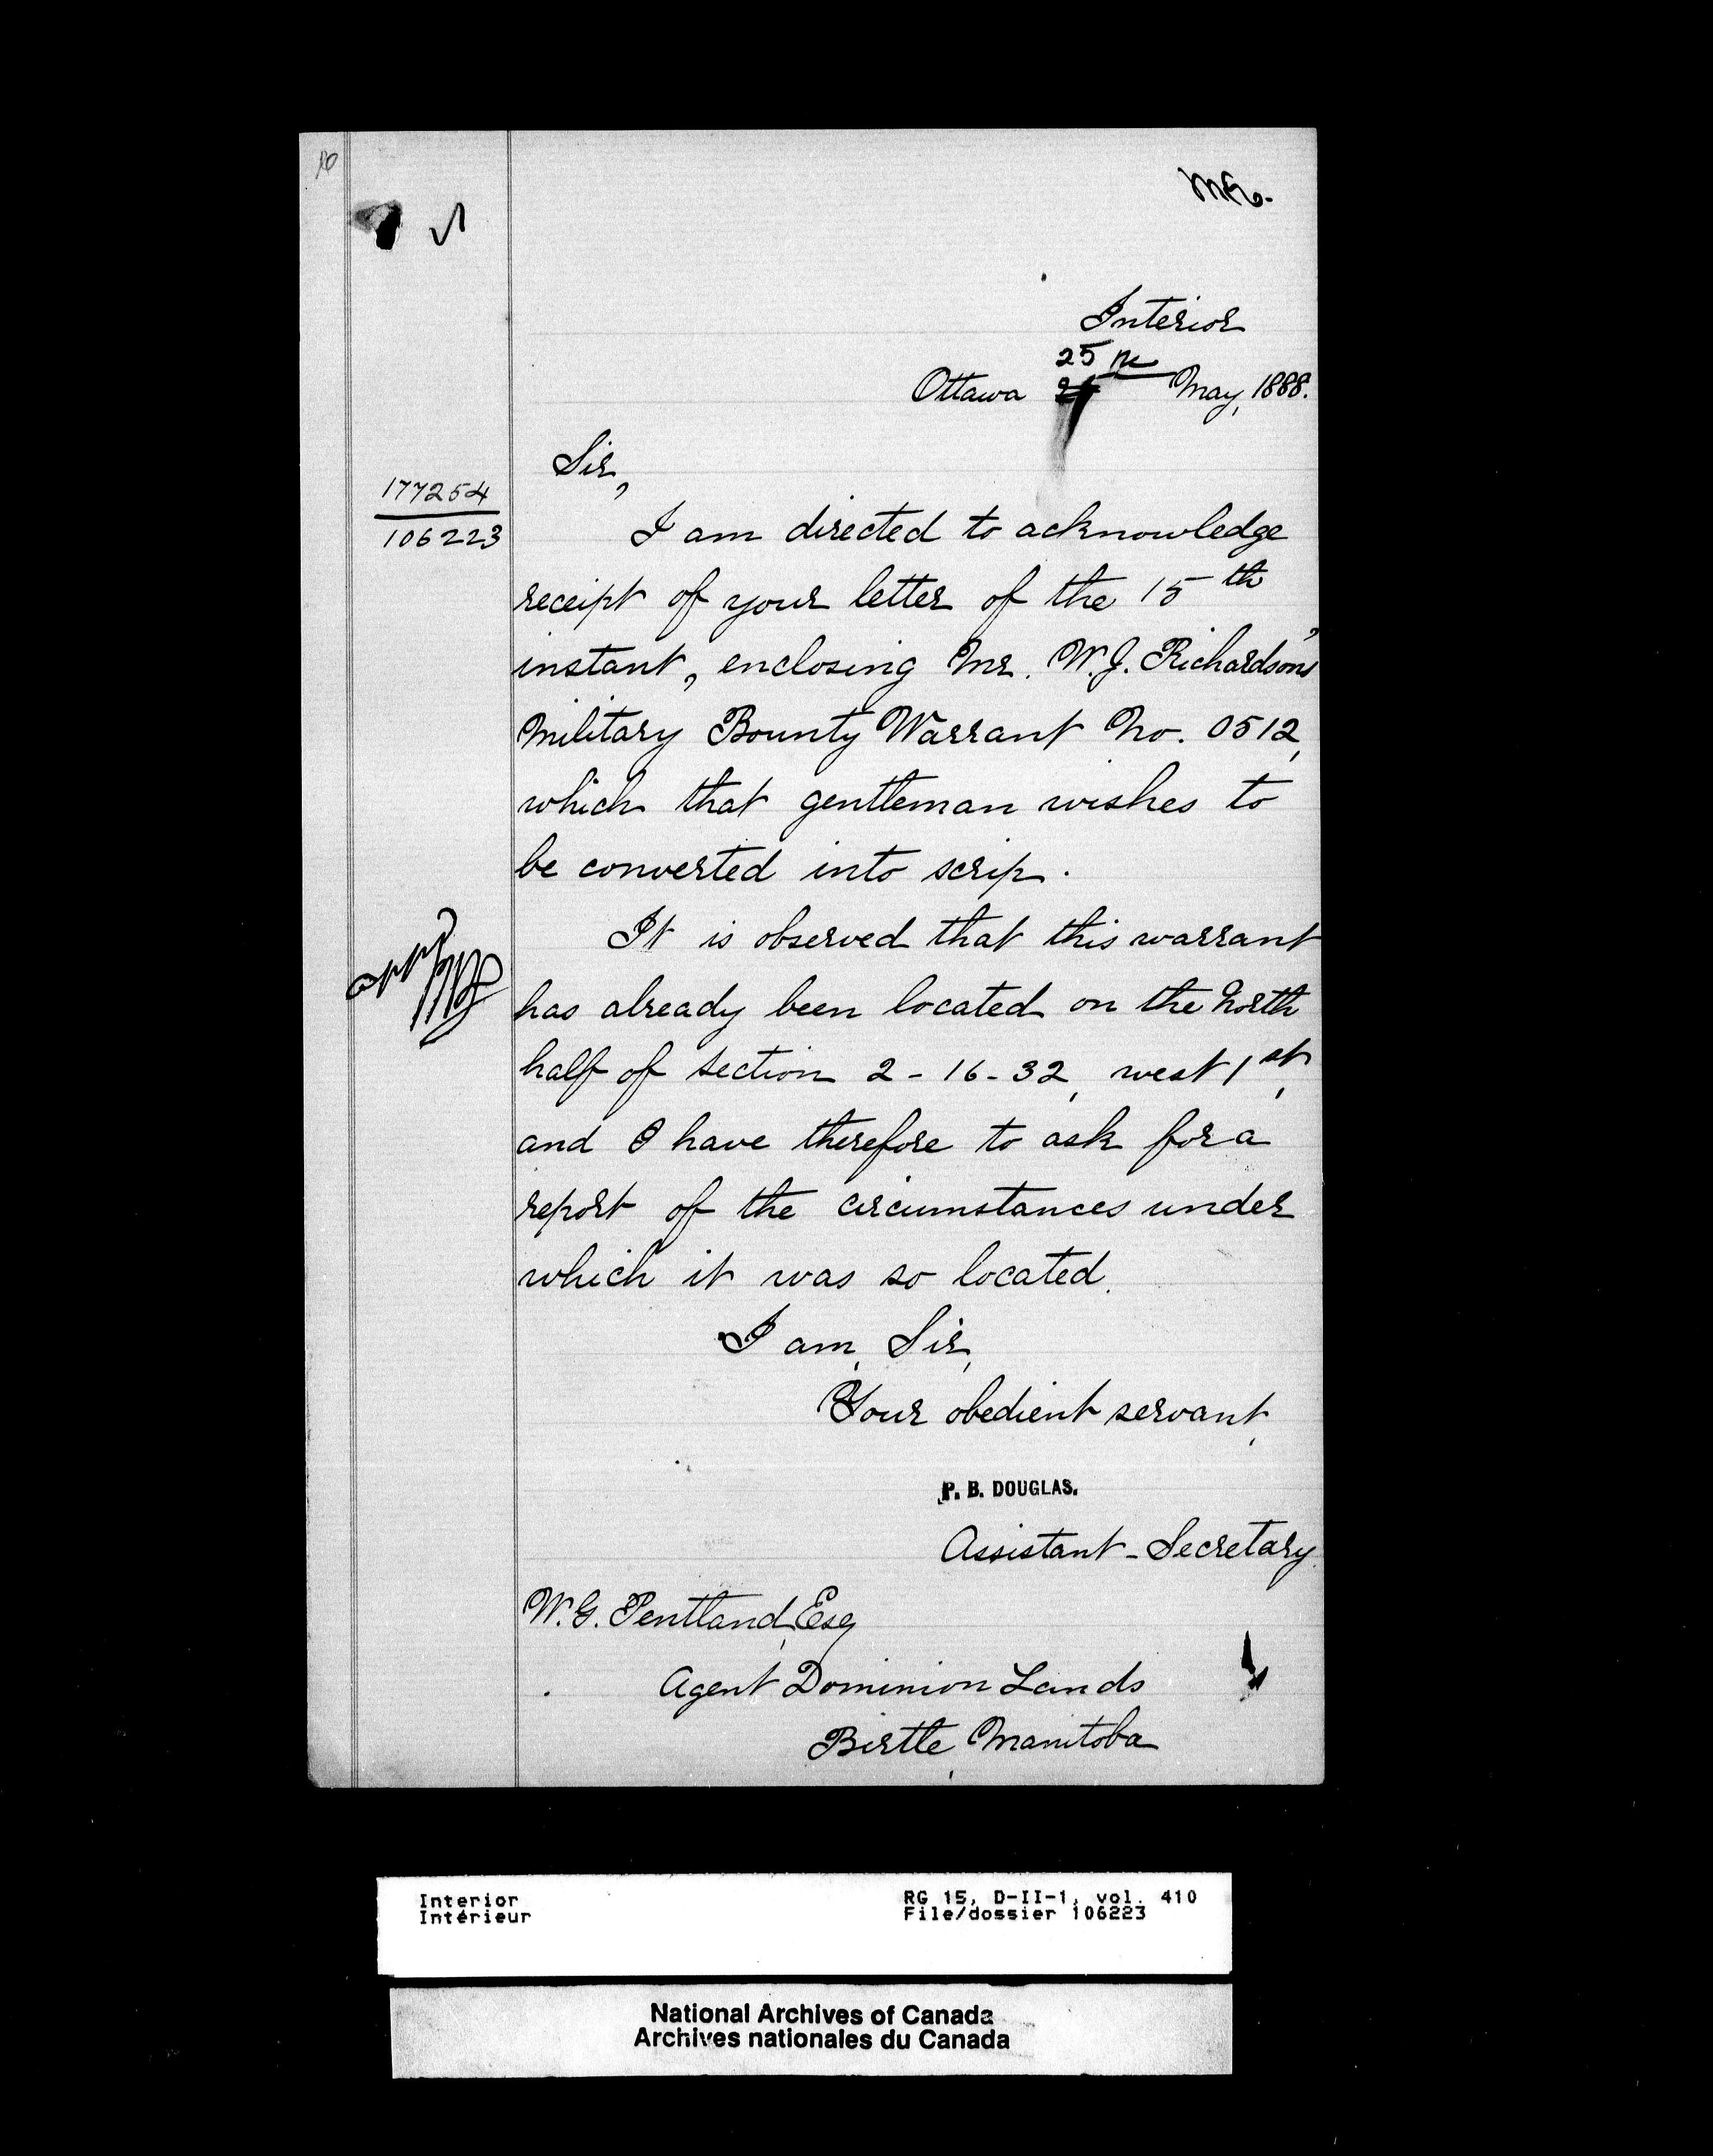 10
Interior
25th
Ottawa 24 May, 1888.
Sir,
177254
106223
I am directed to acknowledge
receipt of your letter of the 15th
instant, enclosing Mr. W.J. Richardson's
Military Bounty Warrant No. 0512,
which that gentleman wishes to
be converted into scrip.
It is observed that this warrant
has already been located on the North
half of section 2-16-32, west 1st,
and I have therefore to ask for a
report of the circumstances under
which it was so located.
I am, Sir,
Your obedient servant,
P. B. DOUGLAS.
Assistant-Secretary.
W.G. Pentland, Esq
Agent Dominion Lands
Birtle, Manitoba
Interior
Intérieur
RG 15, D-II-1, vol. 410
File/dossier 106223
National Archives of Canada
Archives nationales du Canada